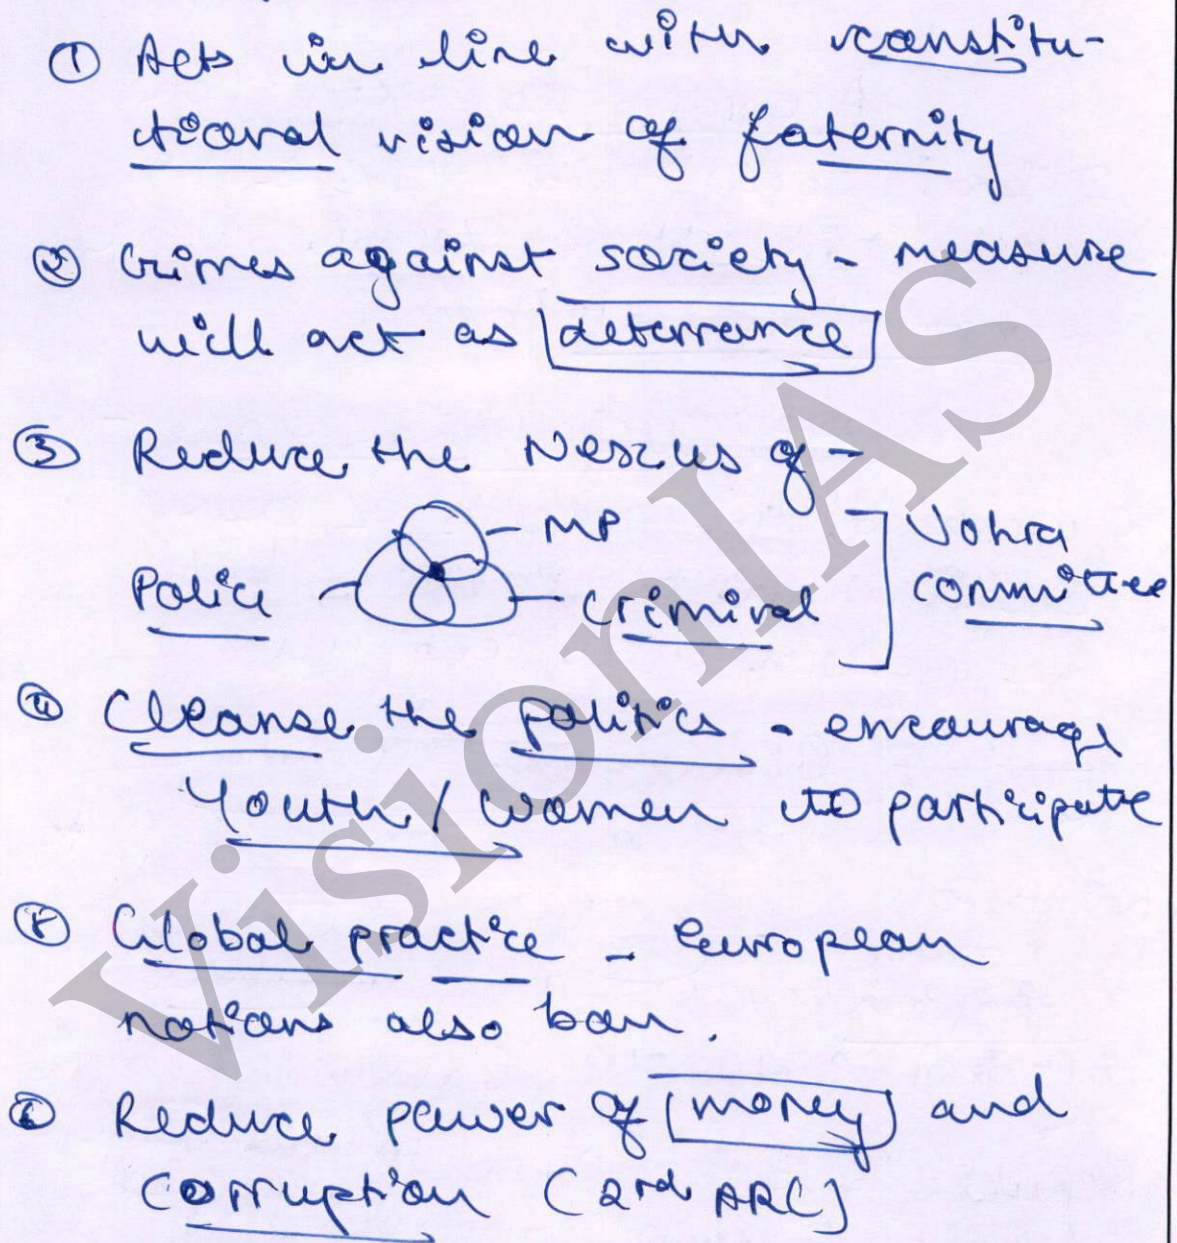 ① Acts in line with constitu-
tional vision of faternity
② Crimes against society - measure
will act as deterrance
③ Reduce the Nexus of -
MP
Police
Criminal
Vohra
committee
④ Cleanse the politics - encourage
Youth / Women to participate
⑤ Global practice - European
nations also ban.
⑥ Reduce power of money and
corruption (2nd ARC)
VisionIAS